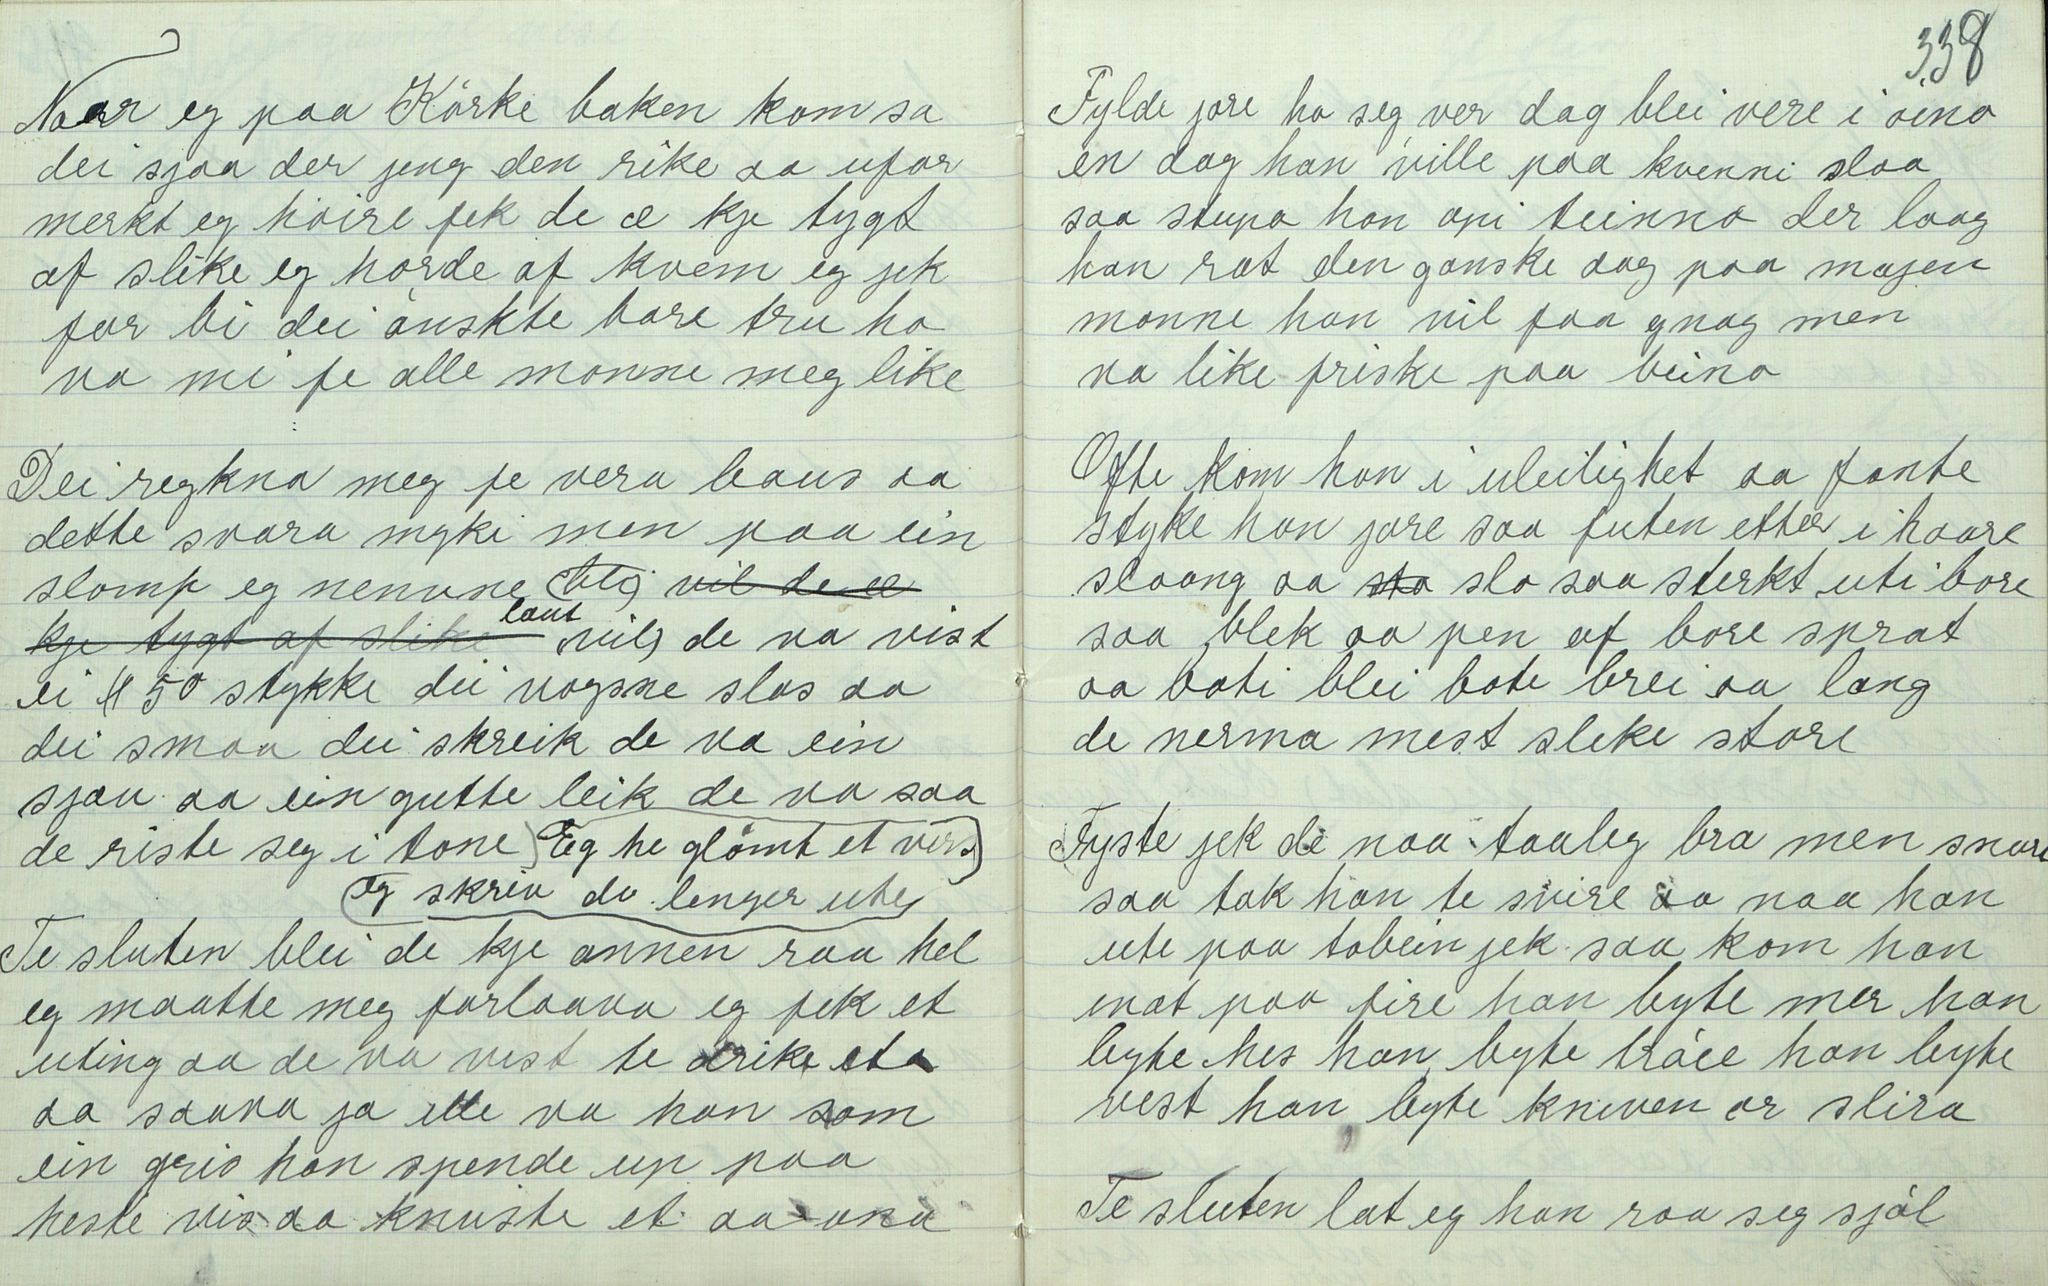 Naar eg paa Körke baken kom sa
dei sjaa der jeng den rike aa ufor
merkt eg höire fek de æ kje tygt
af slike eg hörde af kvem eg jek
for bi dei önskte bare tru ho
va mi fe alle monne meg like
Dei reykna meg fe vera baus aa
dette svara myki men paa ein
slomp eg nemnne (blej vil de æ
kje tygt af slike laut vil) de va vist
ei 50 stykke dei vogsne slos aa
dei smaa dei skreik de va ein
sjau aa ein gutte leik de va saa
de riste seg i tone (Eg he glömt et vers)
(eg skriv da lenger ute)
Te sluten blei de kje annen raa hel
eg maatte meg forlaava eg fek et
uting aa de va vist te drike eta
aa saava ja ille va han som
ein gris han spende up paa
heste vis aa knuste et aa
338
Fylde jore ho seg ver dag blei vere i öino
en dag han ville paa kvenni slaa
saa stupa han opi teinno der laag
han rat den ganske dag paa majen
monne han vil faa gnag men
va like friske paa beino
Ofte kom han i uleilighet aa fante
styke han jore saa futen etter i haare
slaang aa sta slo saa sterkt uti bore
saa blek aa pen af bore sprat
aa boti blei bote brei aa lang
de nerma mest sleke store
Fyste jek de naa taaleg bra men snare
saa tok han te svire aa naa han
ute paa tobein jek saa kom han
inat paa fire han byte mer han
byte hes han byte tröie han byte
vest han byte kniven or slira
Te sluten lat eg han raa seg sjöl